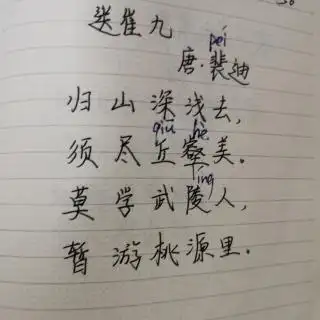 送崔九
péi
唐·裴迪
归山深浅去,
qiū hè
须尽丘壑美.
líng
莫学武陵人,
暂游桃源里.